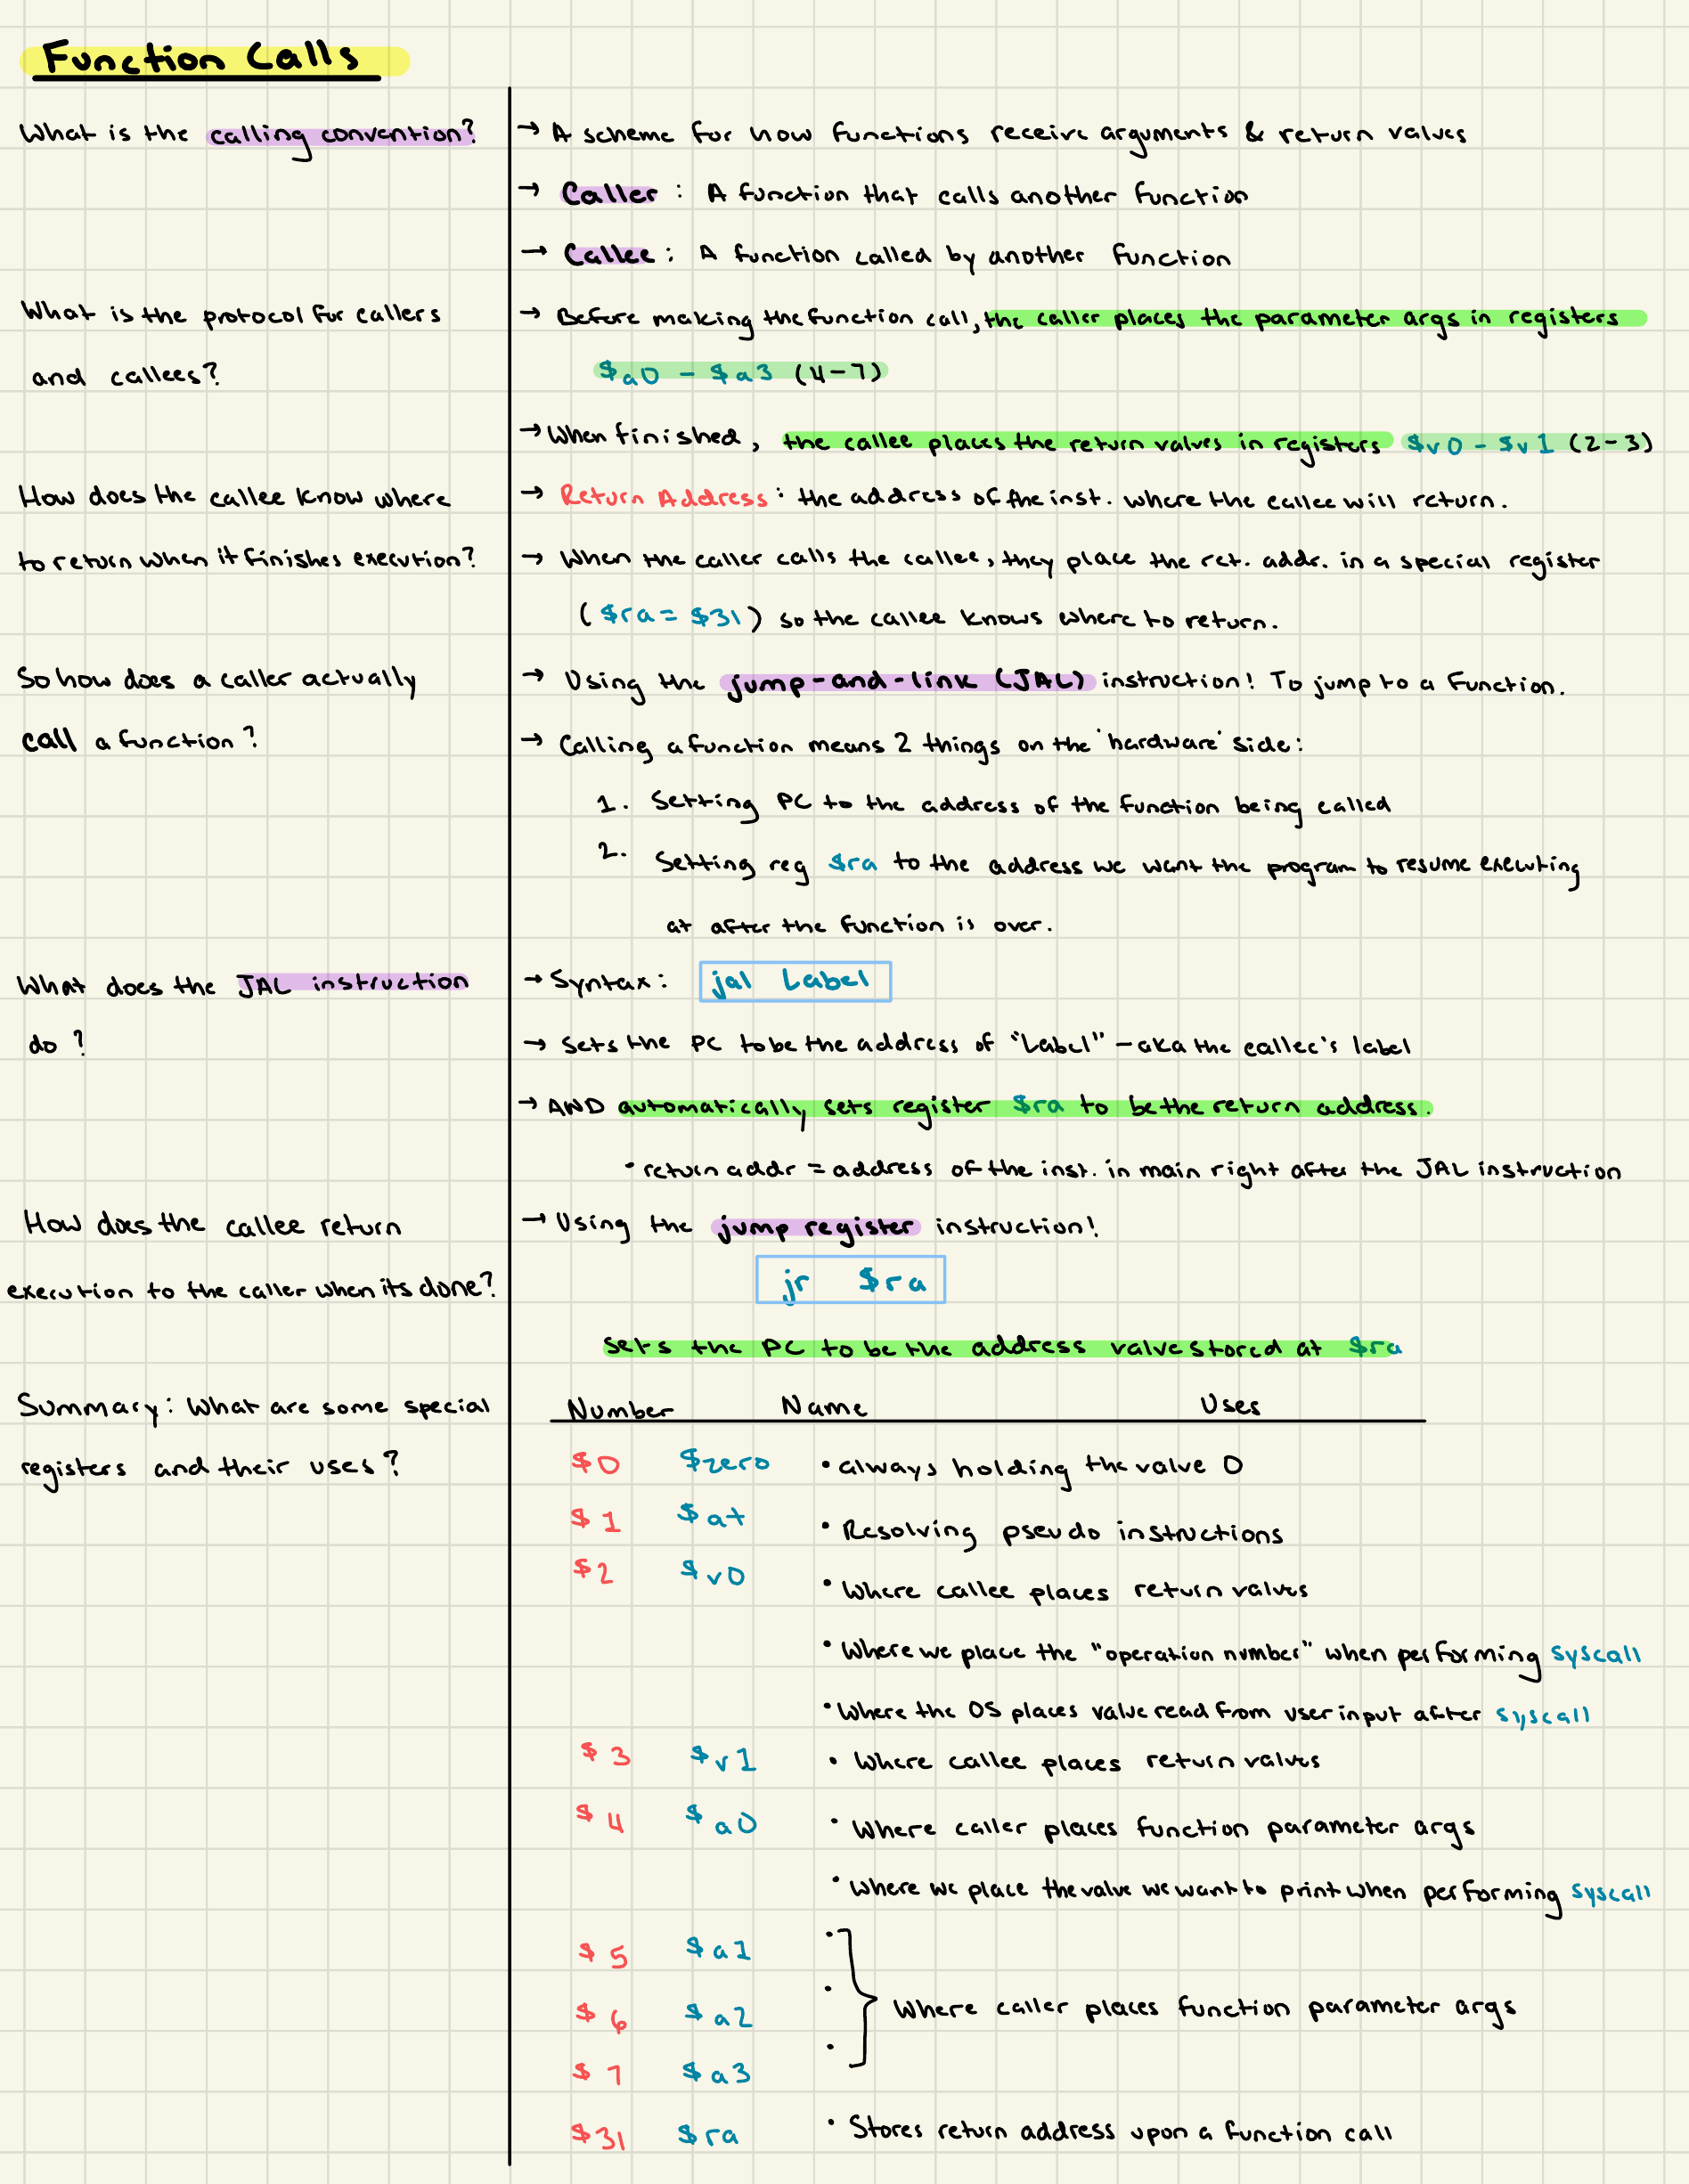 Function Calls
What is the calling convention?
→ A scheme for how functions receive arguments & return values
→ Caller : A function that calls another function
→ Callee : A function called by another function
What is the protocol for callers
and callees?
→ Before making the function call, the caller places the parameter args in registers
$a0 - $a3 (4-7)
→ When finished, the callee places the return values in registers $v0 - $v1 (2-3)
How does the callee know where
to return when it finishes execution?
→ Return Address : the address of the inst. where the callee will return.
→ When the caller calls the callee, they place the ret. addr. in a special register
($ra = $31) so the callee knows where to return.
So how does a caller actually
call a function?
→ Using the jump-and-link (JAL) instruction! To jump to a function.
→ Calling a function means 2 things on the 'hardware' side:
1. Setting PC to the address of the function being called
2. Setting reg $ra to the address we want the program to resume executing
at after the function is over.
What does the JAL instruction
do ?
→ Syntax: jal Label
→ Sets the PC to be the address of "Label" - aka the callee's label
→ AND automatically sets register $ra to be the return address.
• return addr = address of the inst. in main right after the JAL instruction
How does the callee return
execution to the caller when its done?
→ Using the jump register instruction!
jr $ra
sets the PC to be the address value stored at $ra
Summary: What are some special
registers and their uses?
Number Name Uses
$0 $zero • always holding the value 0
$1 $at • Resolving pseudo instructions
$2 $v0 • Where callee places return values
• Where we place the "operation number" when performing syscall
• Where the OS places value read from user input after syscall
$3 $v1 • Where callee places return values
$4 $a0 • Where caller places function parameter args
• Where we place the value we want to print when performing syscall
$5 $a1 •
$6 $a2 • } Where caller places function parameter args
$7 $a3 •
$31 $ra • Stores return address upon a function call